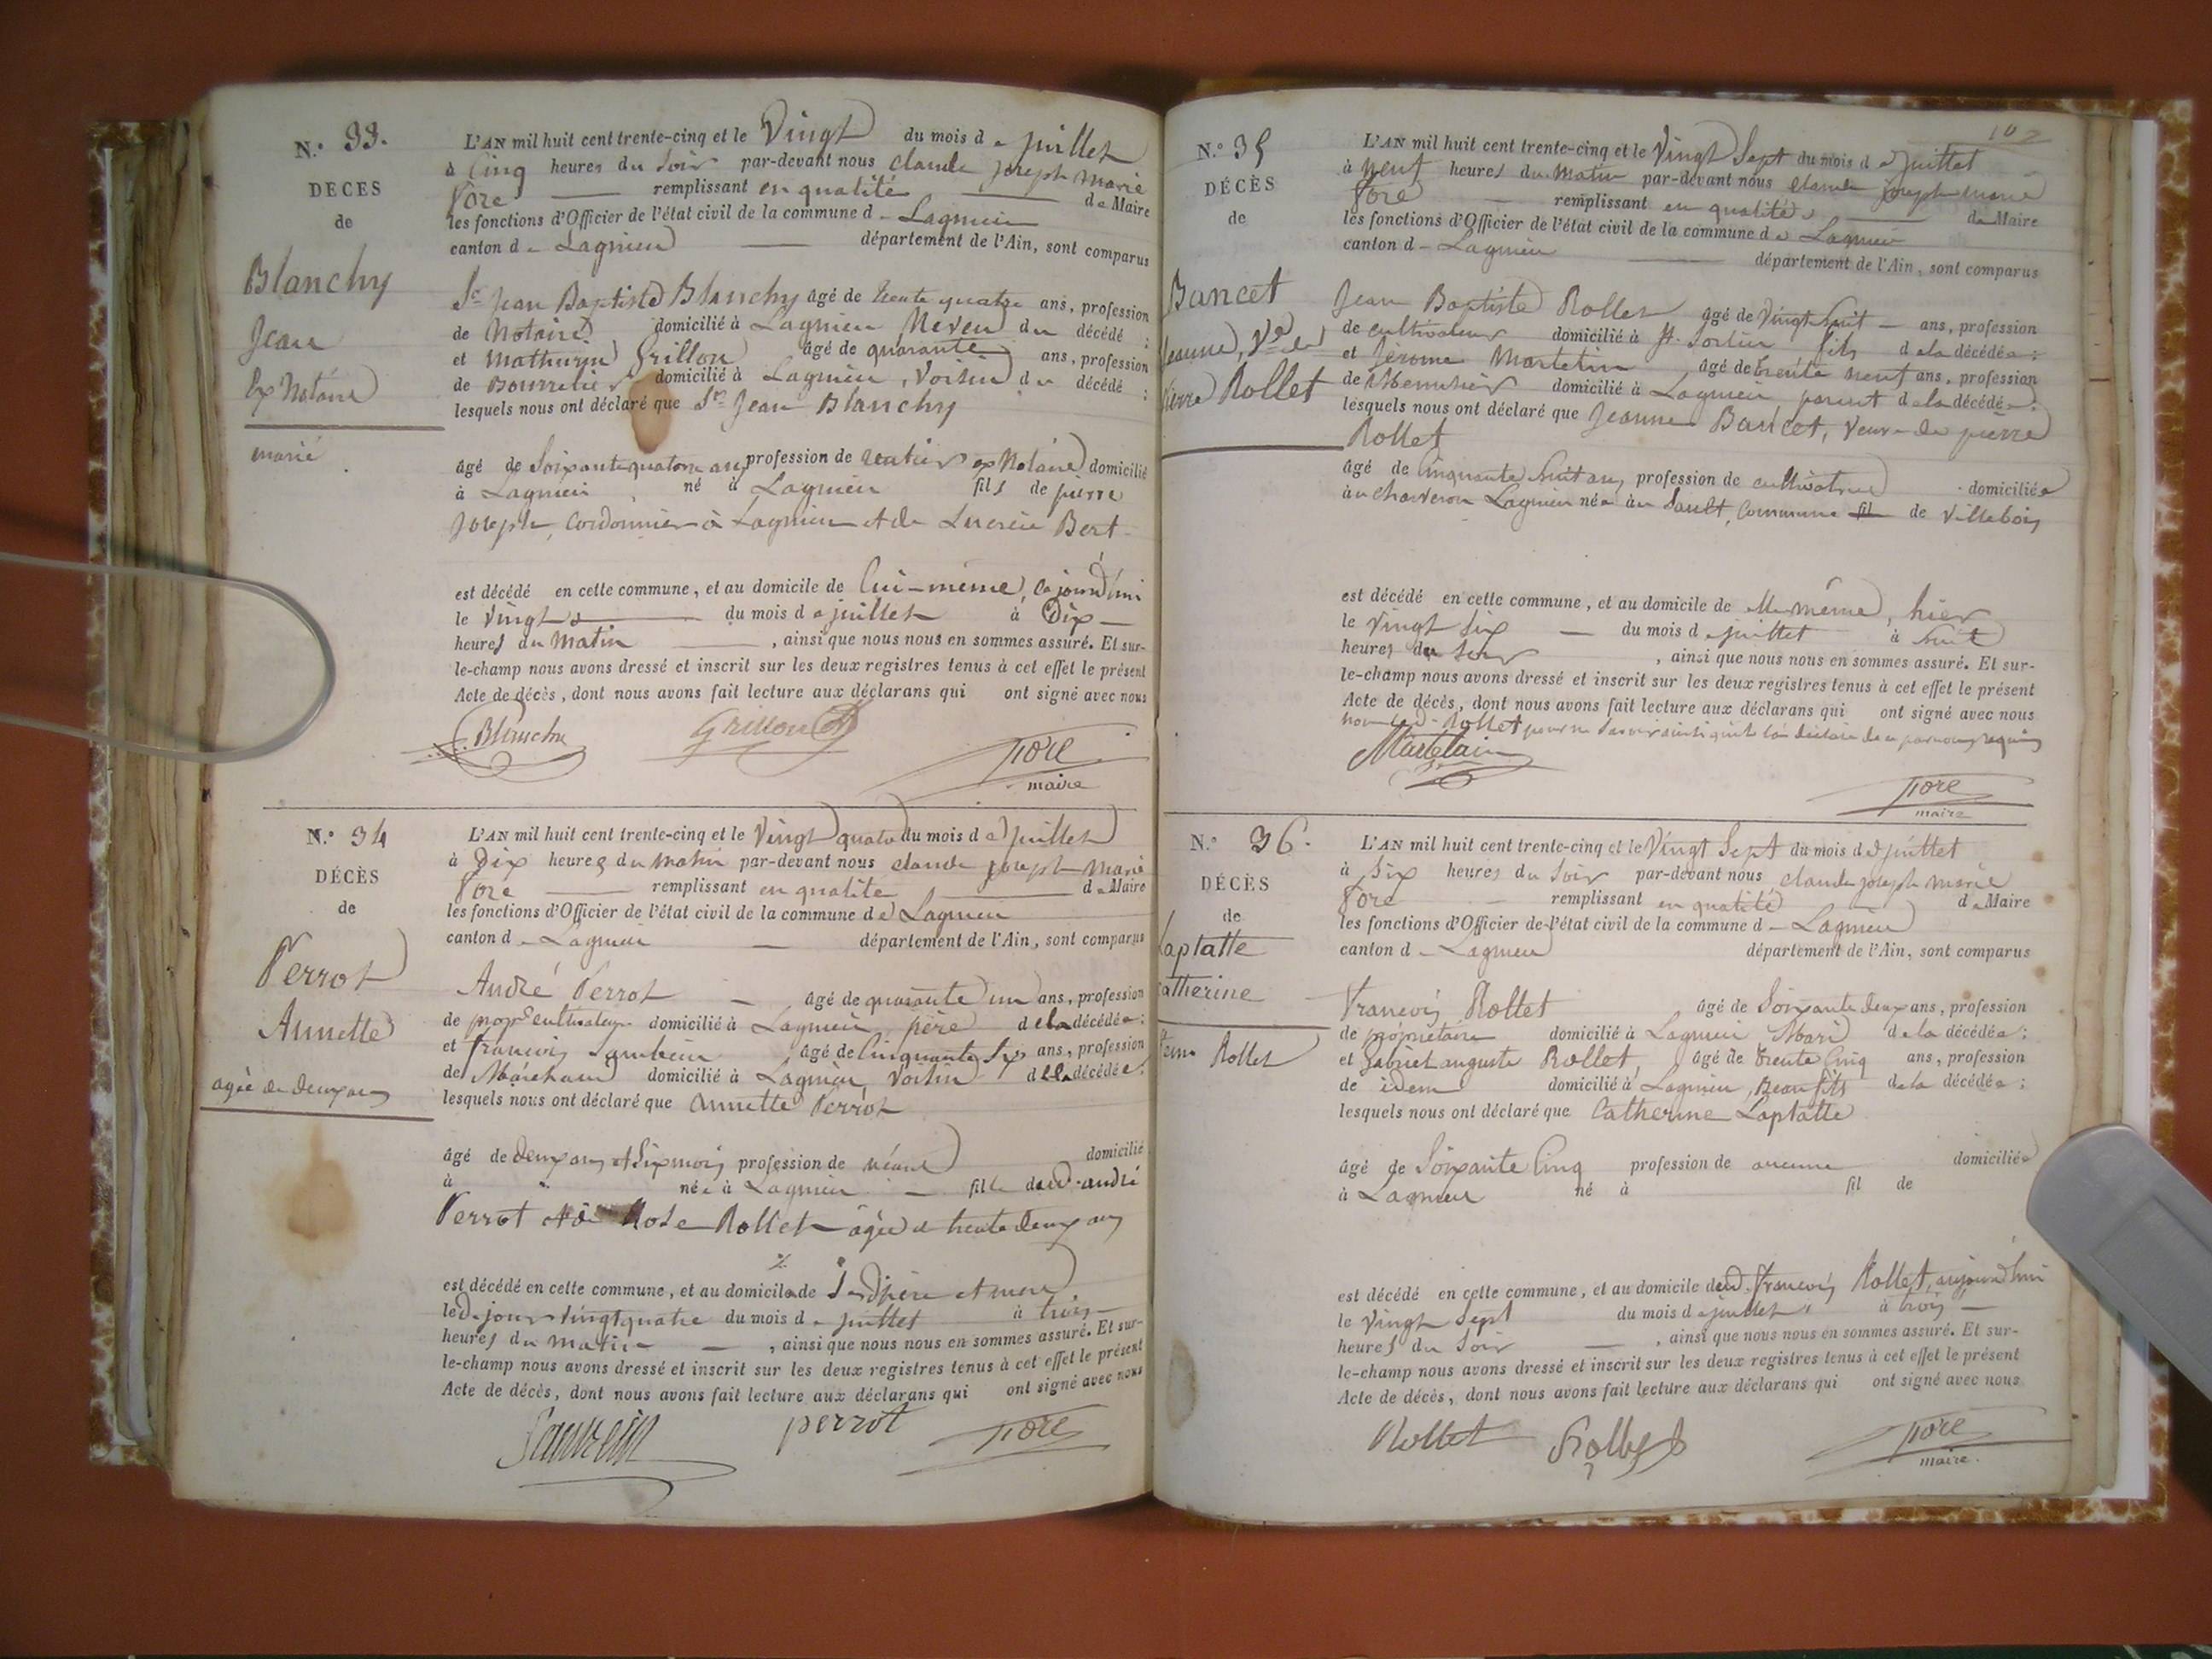 N.° 33.
DÉCES
de
Blanchy
Jean
Ex Notaire
marié
L'AN mil huit cent trente-cinq et le Vingt du mois de juillet
à Cinq heures du Soir par-devant nous Claude joseph Marie
Pore remplissant en qualité de Maire
les fonctions d'Officier de l'état civil de la commune de Lagnieu
canton de Lagnieu département de l'Ain, sont comparus
Sr Jean Baptiste Blanchy âgé de trente quatre ans, profession
de Notaire domicilié à Lagnieu Neveu du décédé ;
et Mathurin Grillon âgé de quarante ans, profession
de Bourrelier domicilié à Lagnieu, Voisin du décédé ;
lesquels nous ont déclaré que Sr Jean Blanchy
âgé de Soixante quatorze ans profession de rentier ex Notaire domicilié
à Lagnieu, né à Lagnieu fils de pierre
joseph, Cordonnier à Lagnieu et de Lucrèce Bert
est décédé en cette commune, et au domicile de lui-même, ce jourd'hui
le Vingt du mois de juillet à Dix
heures du Matin, ainsi que nous nous en sommes assuré. Et sur-
le-champ nous avons dressé et inscrit sur les deux registres tenus à cet effet le présent
Acte de décès, dont nous avons fait lecture aux déclarans qui ont signé avec nous
Blanchy Grillon Pore
maire
N.° 34
DÉCÈS
de
Perrot
Annette
agée de deux ans
L'AN mil huit cent trente-cinq et le Vingt quatre du mois de juillet
à Dix heures du matin par-devant nous Claude joseph Marie
Pore remplissant en qualité de Maire
les fonctions d'Officier de l'état civil de la commune de Lagnieu
canton de Lagnieu département de l'Ain, sont comparus
André Perrot âgé de quarante un ans, profession
de propre cultivateur domicilié à Lagnieu, père de la décédée ;
et françois âgé de Cinquante Six ans, profession
de Maréchand domicilié à Lagnieu, Voisin de la décédée ;
lesquels nous ont déclaré que Annette Perrot
âgé de deux ans et Six mois profession de néant domicilié
à " née à Lagnieu fille dud. andré
Perrot et de Rose Rollet âgée de trente deux ans
est décédé en cette commune, et au domicile de Sesd. père et mere
led. jour vingt quatre du mois de juillet à trois
heures du matin, ainsi que nous nous en sommes assuré. Et sur-
le-champ nous avons dressé et inscrit sur les deux registres tenus à cet effet le présent
Acte de décès, dont nous avons fait lecture aux déclarans qui ont signé avec nous
perrot Pore
102
N.° 35
DÉCÈS
de
Bancet
Jeanne, Ve de
Pierre Rollet
L'AN mil huit cent trente-cinq et le Vingt Sept du mois de juillet
à Neuf heures du Matin par-devant nous Claude joseph marie
Pore remplissant en qualité de Maire
les fonctions d'Officier de l'état civil de la commune de Lagnieu
canton de Lagnieu département de l'Ain, sont comparus
Jean Baptiste Rollet âgé de Vingt huit ans, profession
de cultivateur domicilié à St. Sorlin fils de la décédée ;
et Jerome Martelin âgé de trente neuf ans, profession
de Menuisier domicilié à Lagnieu parent de la décédée ;
lesquels nous ont déclaré que Jeanne Bancet, veuve de pierre
Rollet
âgé de Cinquante huit ans, profession de cultivatrice domiciliée
à Lagnieu née au Sault, Commune fil de Villebois
est décédé en cette commune, et au domicile de elle même, hier
le Vingt Six du mois de juillet à huit
heures du Soir, ainsi que nous nous en sommes assuré. Et sur-
le-champ nous avons dressé et inscrit sur les deux registres tenus à cet effet le présent
Acte de décès, dont nous avons fait lecture aux déclarans qui ont signé avec nous
non led. Rollet pour ne Savoir ainsi qu'il l'a déclaré de ce par nous requis
Martelain
Pore
maire
N.° 36.
DÉCÈS
de
Laplatte
Catherine
Rollet
L'AN mil huit cent trente-cinq et le Vingt Sept du mois de juillet
à Six heures du Soir par-devant nous Claude joseph marie
Pore remplissant en qualité de Maire
les fonctions d'Officier de l'état civil de la commune de Lagnieu
canton de Lagnieu département de l'Ain, sont comparus
François Rollet âgé de Soixante deux ans, profession
de propriétaire domicilié à Lagnieu Mari de la décédée ;
et gabriel auguste Rollet, âgé de trente Cinq ans, profession
de idem domicilié à Lagnieu, Beau fils de la décédée ;
lesquels nous ont déclaré que Catherine Laplatte
âgé de Soixante Cinq profession de aucune domiciliée
à Lagnieu né à fil de
est décédé en cette commune, et au domicile dud. françois Rollet, aujourd'hui
le Vingt Sept du mois de juillet à trois
heures du Soir, ainsi que nous nous en sommes assuré. Et sur-
le-champ nous avons dressé et inscrit sur les deux registres tenus à cet effet le présent
Acte de décès, dont nous avons fait lecture aux déclarans qui ont signé avec nous
Rollet Rollet Pore
maire.